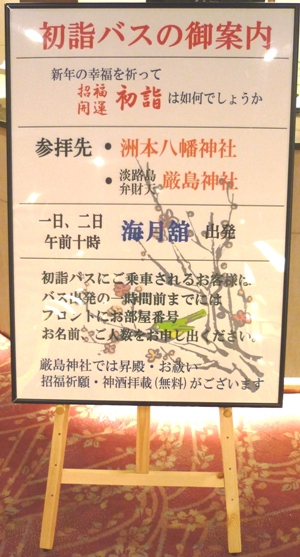 初詣バスの御案内
新年の幸福を祈って
招福
開運 初詣は如何でしょうか
参拝先・洲本八幡神社
・淡路島
弁財天 厳島神社
一日、二日
午前十時 海月舘 出発
初詣バスにご乗車されるお客様は
バス出発の一時間前までには
フロントにお部屋番号
お名前、ご人数をお申し出ください。
厳島神社では昇殿・お祓い
招福祈願・神酒拝載(無料)がございます